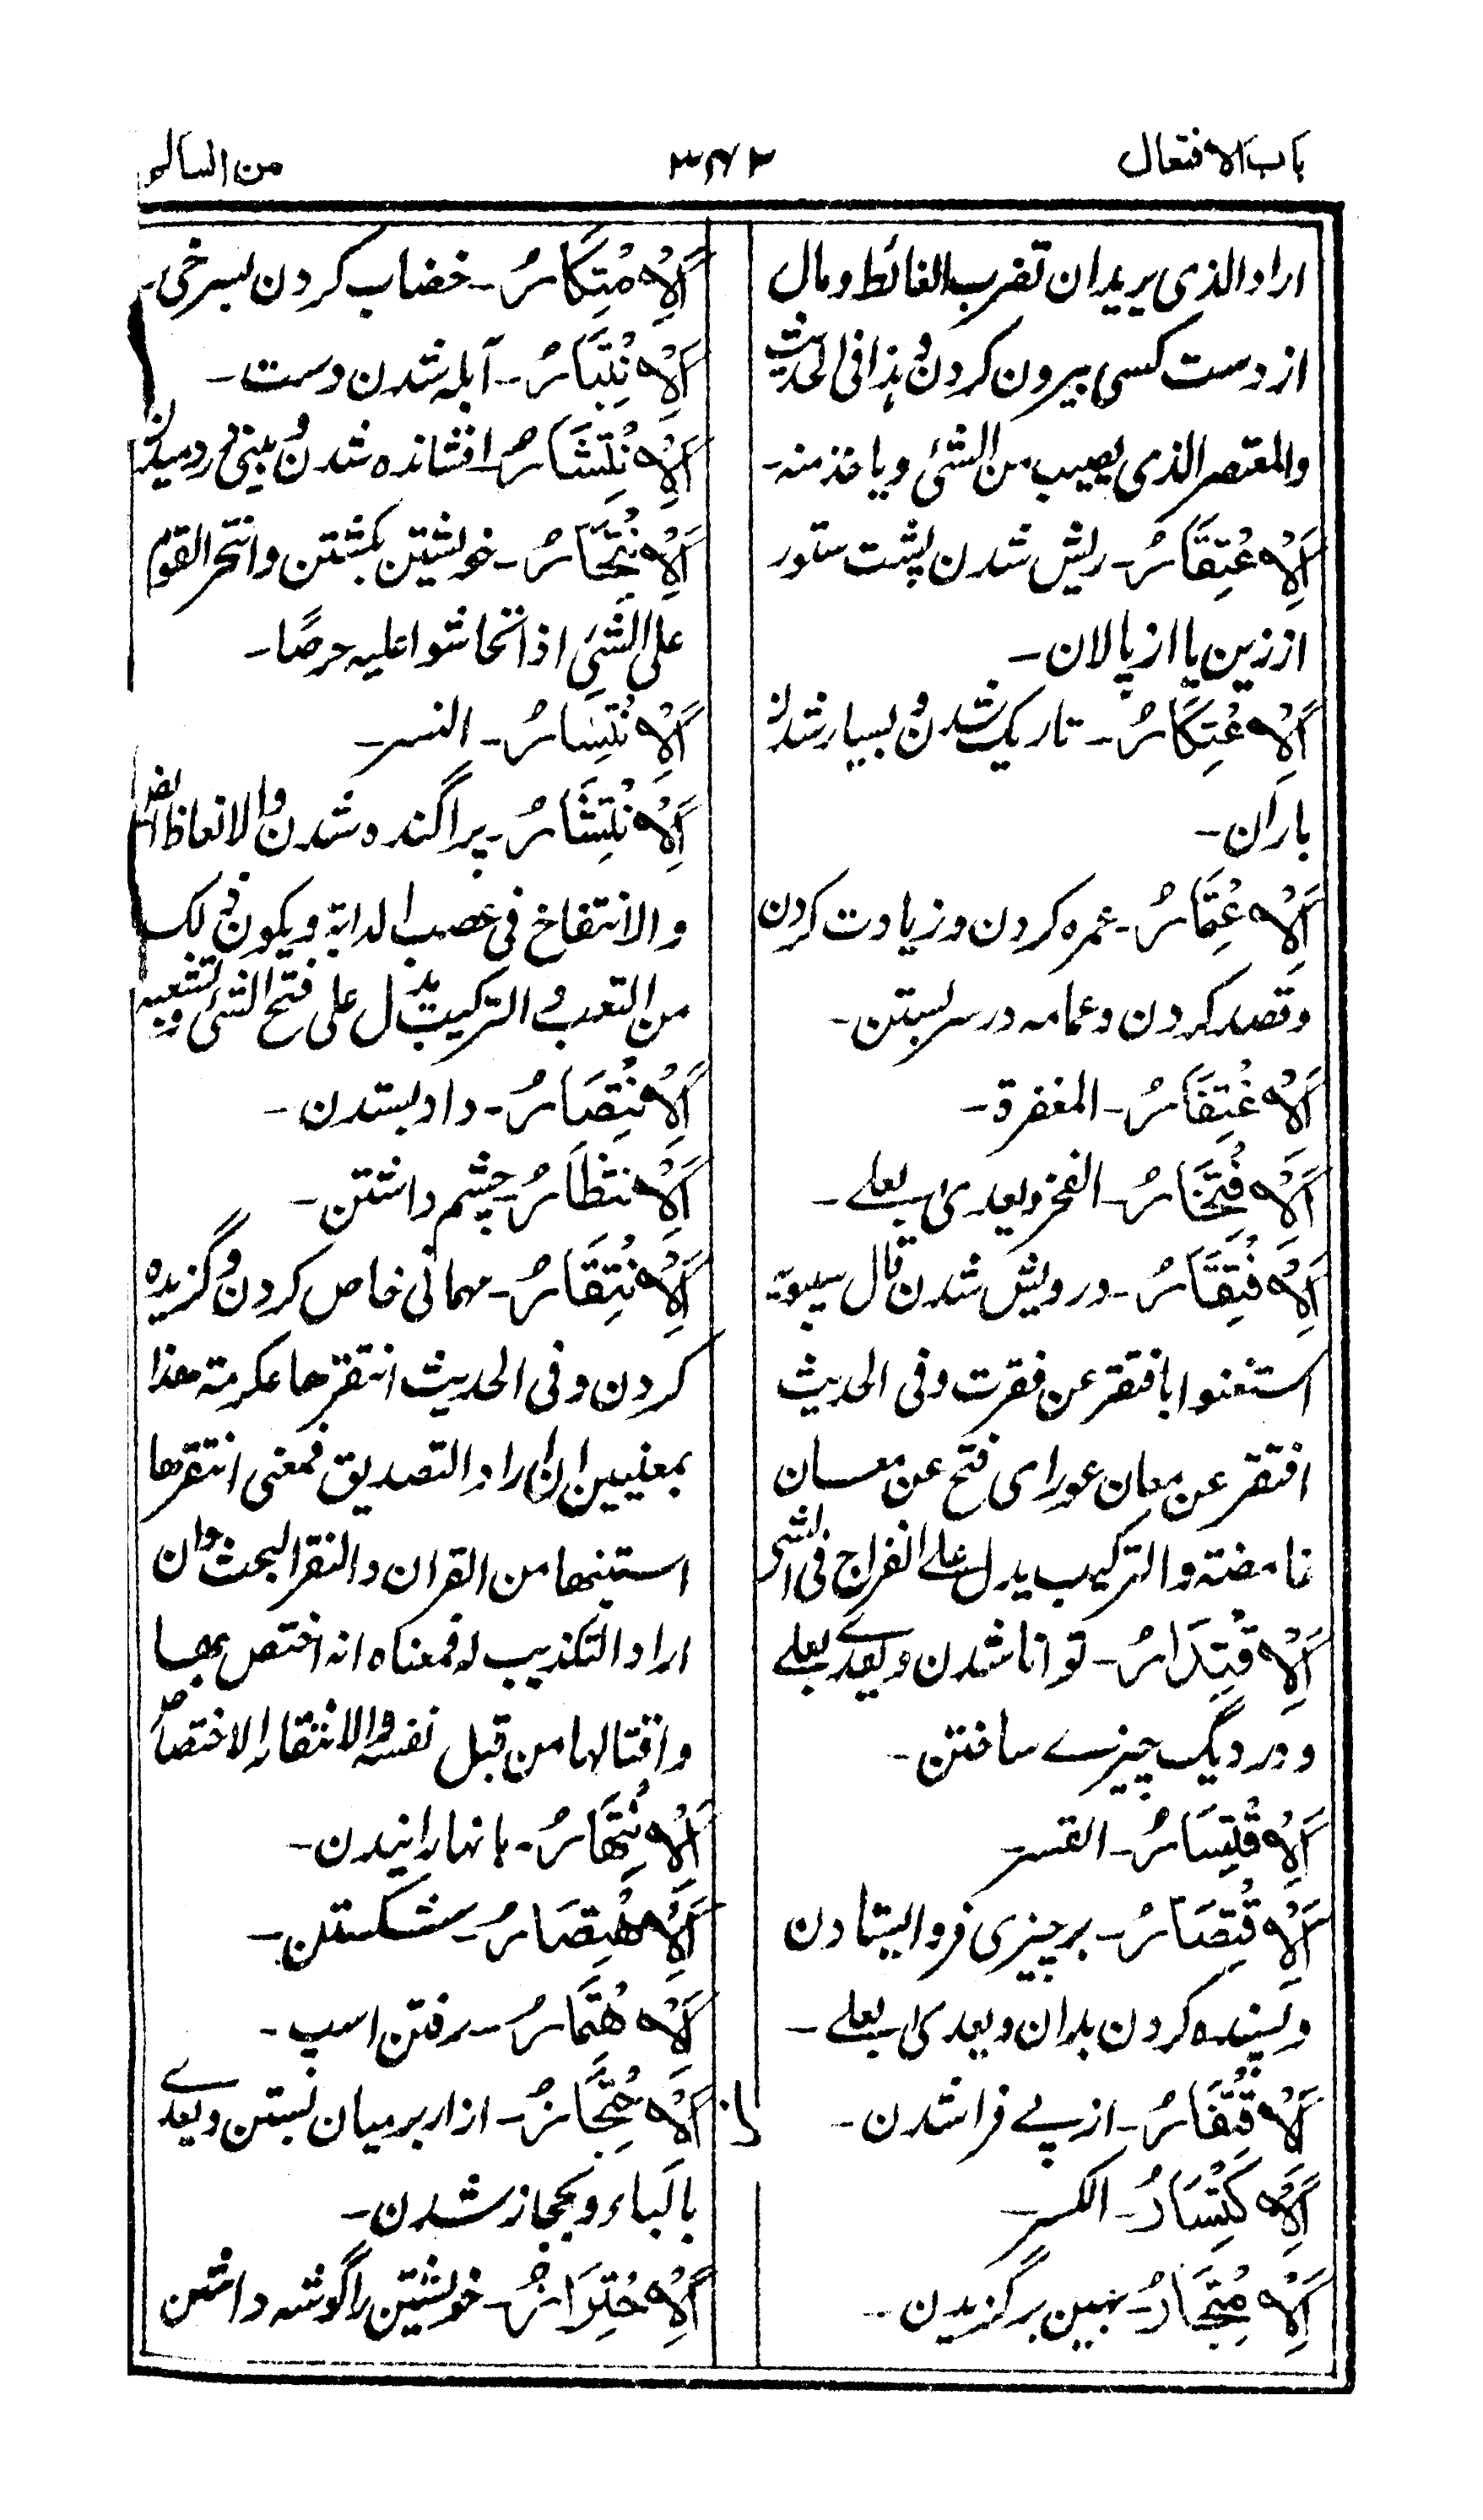 باب الافتعال
۳۶۲
من السالم
اراد الذی یرید ان تضرب الغائط و مال
از دست کسی بیرون کردن و ہذا فی الحدیث
والمعتصر الذی یصیب من الشئ و یاخذ منه۔
اَلْاِعْتِقَارُ۔ ریش شدن پشت ستور
از زین یا از پالان۔
اَلْاِعْتِكَارُ۔ تاریک شدن و بسیار شدن
باران۔
اَلْاِعْتِمَارُ۔ عمره کردن و زیارت کردن
و قصد کردن و عمامه در سر بستن۔
اَلْاِغْتِفَارُ۔ المغفرة۔
اَلْاِفْتِخَارُ۔ الفخر ویعدی بعلے۔
اَلْاِفْتِقَارُ۔ درویش شدن قال سیبویه
استغنوا بافتقر عن فقرت و فی الحدیث
افتقر عن معان عور ای فتح عن معان
غامضة والترکیب یدل علے انفراج فی الشئ
اَلْاِقْتِدَارُ۔ توانا شدن ویعدے بعلے
و در دیگ چیزے ساختن۔
اَلْاِقْتِسَارُ۔ القسر
اَلْاِقْتِصَارُ۔ بر چیزی فرو ایستادن
و بسنده کردن بدان ویعدی بعلے۔
اَلْاِقْتِفَارُ۔ از پے فرا شدن۔
اَلْاِكْتِسَارُ۔ الکسر
اَلْاِمْتِخَارُ۔ بہین برگزیدن۔
اَلْاِمْتِكَارُ۔ خضاب کردن بسرخی۔
اَلْاِنْتِبَارُ۔ آبله شدن دست۔
اَلْاِنْتِثَارُ۔ افشانده شدن و بینی
اَلْاِنْتِحَارُ۔ خویشتن بکشتن وانتحر القوم
علی الشئ اذا تحاشوا علیه حرصًا۔
اَلْاِنْتِسَارُ۔ النسر۔
اَلْاِنْتِشَارُ۔ پراگنده شدن والانعاظ ایضا
والانتفاخ فی عصب الدابة ویکون ذلک
من التعب والترکیب یدل علی فتح الشئ وتشعبه
اَلْاِنْتِصَارُ۔ داد بستدن۔
اَلْاِنْتِظَارُ۔ چشم داشتن۔
اَلْاِنْتِقَارُ۔ مہمانی خاص کردن و گزیده
کردن و فی الحدیث انتقرها عکرمة هذا
بمعنیین ان اراد التصدیق فمعنی انتقرها
استنبطها من القران والنقر البحث وان
اراد التکذیب له فمعناه انه اختص بها
وافتالها من قبل نفسه والانتقار الاختصاص
اَلْاِنْتِهَارُ۔ بانہار رانیدن۔
اَلْاِهْتِصَارُ۔ شکستن۔
اَلْاِهْتِمَارُ۔ رفتن اسپ۔
ز
اَلْاِحْتِجَازُ۔ ازار بر میان بستن ویعدے
بالباء و بحجاز شدن۔
اَلْاِحْتِرَازُ۔ خویشتن را گوشه داشتن